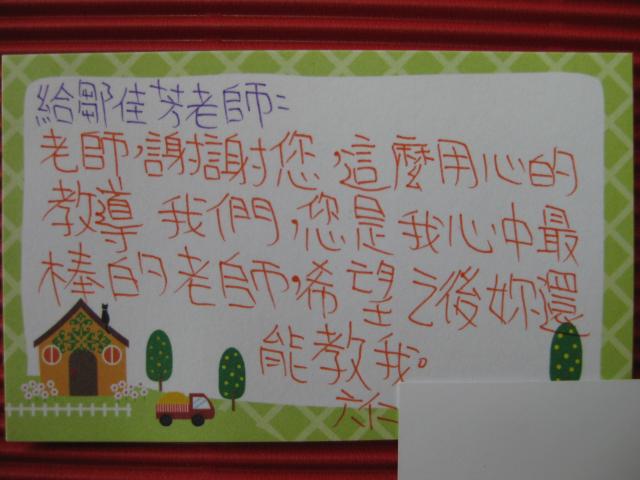 給鄒佳芳老師:
老師,謝謝您,這麼用心的
教導我們,您是我心中最
棒的老師,希望之後妳還
能教我。
六仁